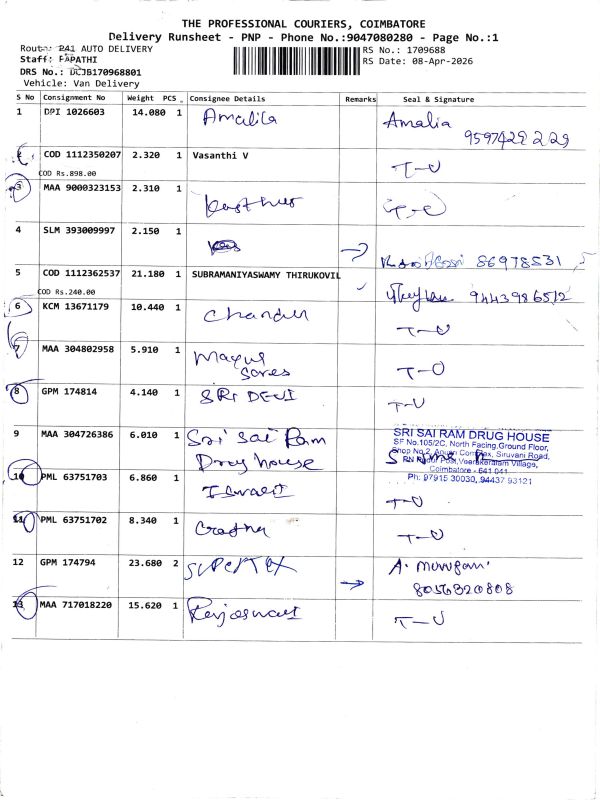 THE PROFESSIONAL COURIERS, COIMBATORE
Delivery Runsheet - PNP - Phone No.:9047080280 - Page No.:1
Route: P41 AUTO DELIVERY
RS No.: 1709688
Staff: PAPATHI
RS Date: 08-Apr-2026
DRS No.: DCJB170968801
Vehicle: Van Delivery
S No Consignment No Weight PCS. Consignee Details Remarks Seal & Signature
1 DPI 1026603 14.080 1 Amalia Amalia
9597429229
2 COD 1112350207 2.320 1 Vasanthi V T-U
COD Rs.898.00
3 MAA 9000323153 2.310 1 T-U
4 SLM 393009997 2.150 1
5 COD 1112362537 21.180 1 SUBRAMANIYASWAMY THIRUKOVIL
COD Rs.240.00
9443986512
6 KCM 13671179 10.440 1 T-U
7 MAA 304802958 5.910 1 T-U
8 GPM 174814 4.140 1 SRI DEVI T-U
9 MAA 304726386 6.010 1 Sri Sai Ram
Drug house
SRI SAI RAM DRUG HOUSE
SF No.105/2C, North Facing,Ground Floor,
Coimbatore - 641 041
Ph: 97915 30030, 94437 93121
10 PML 63751703 6.860 1 T-U
11 PML 63751702 8.340 1 T-U
12 GPM 174794 23.680 2 A. Murugan
8056320808
13 MAA 717018220 15.620 1 T-U